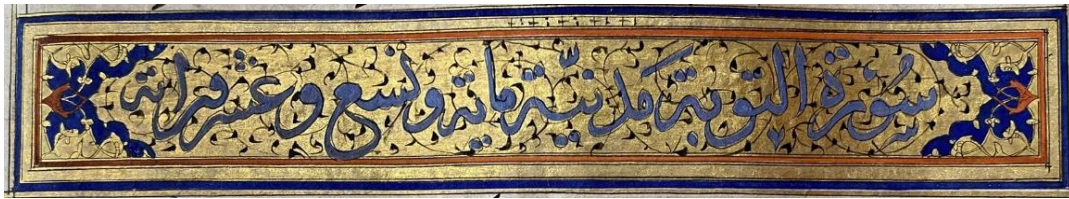 سُورَة التوبة مدنيّة ماية وتسع وعشر قراته